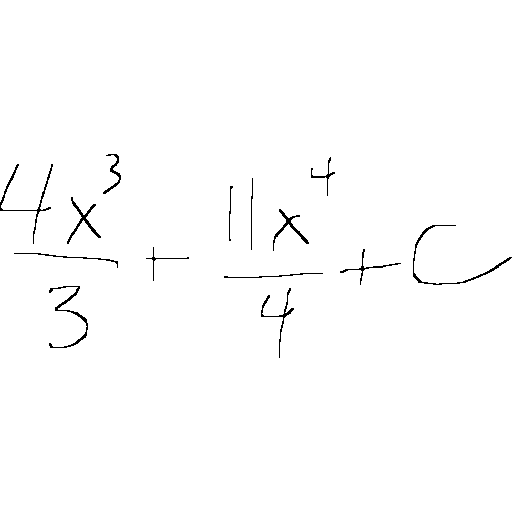 \frac{4x^3}{3} + \frac{11x^4}{4} + C